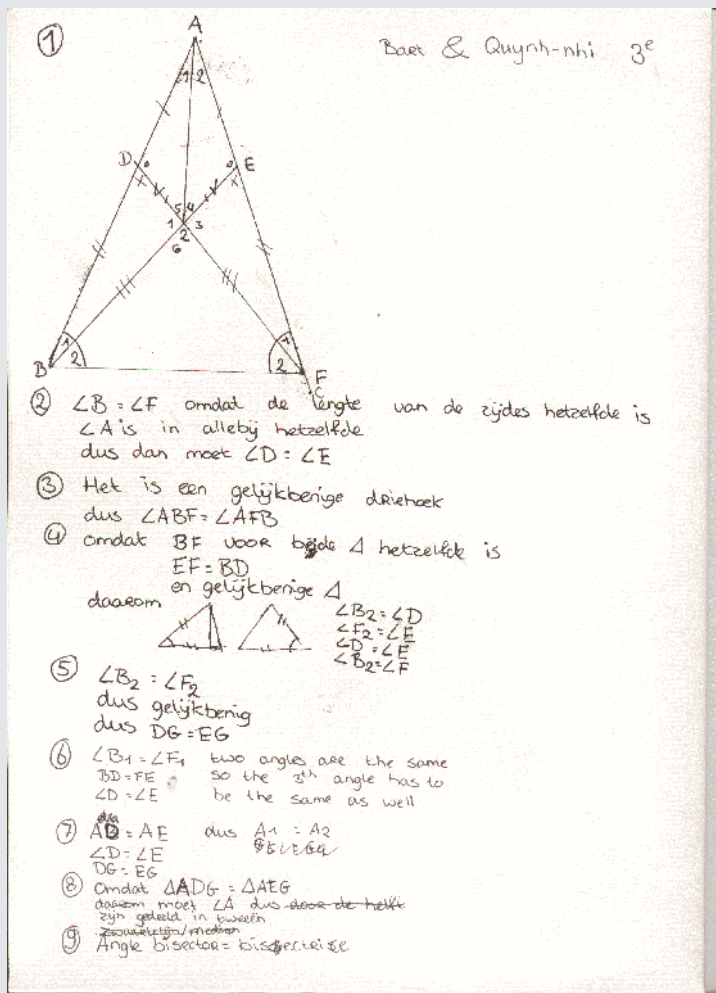 ① Bart & Quynh-nhi 3e
A
1 2
D E
5 4
1 3
2
G
1 2
1
2
B F
C
② ∠B = ∠F omdat de lengte van de zijdes hetzelfde is
∠A is in allebij hetzelfde
dus dan moet ∠D = ∠E
③ Het is een gelijkberige driehoek
dus ∠ABF = ∠AFB
④ omdat BF voor bijde Δ hetzelfde is
EF = BD
en gelijkberige Δ
daarom
∠B2 = ∠D
∠F2 = ∠E
∠D = ∠E
∠B2 = ∠F
⑤ ∠B2 = ∠F2
dus gelijkbenig
dus DG = EG
⑥ ∠B1 = ∠F1 two angles are the same
BD = FE so the 3th angle has to
∠D = ∠E be the same as well
⑦ AD = AE dus A1 = A2
∠D = ∠E
DG = EG
⑧ Omdat ΔADG = ΔAEG
daarom moet ∠A dus door de helft
zijn gedeeld in tweeën
zwaartelijn/median
⑨ Angle bisector = bissectrise